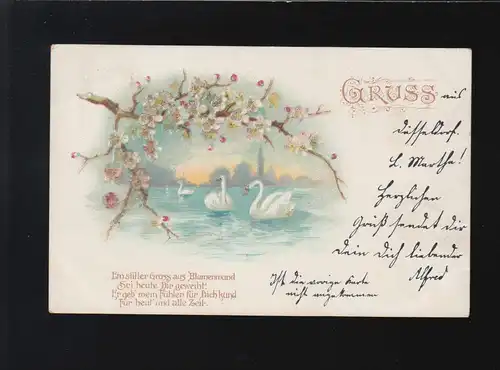 GRUSS aus
Düsseldorf.
L. Martha!
Herzlichen
Gruß sendet dir
Dein dich liebender
Alfred
Ein stiller Gruss aus Blumenmund
Sei heute Dir geweiht;
Er geb' mein Fühlen für Dich kund
Für heut' und alle Zeit.
Ist die vorige Karte
nicht angekommen